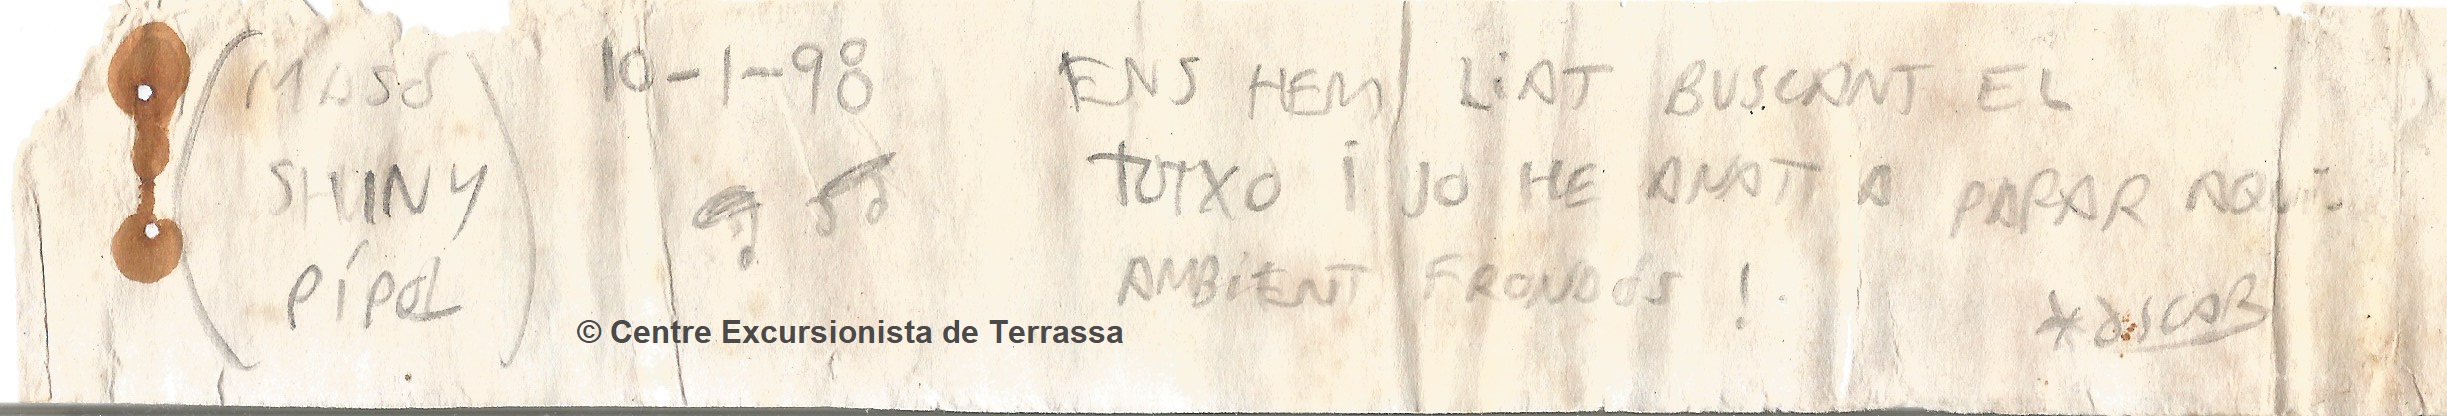 SHINY
PÍPOL
10-1-98
ENS HEM LIAT BUSCANT EL
TUTXO I JO HE ANAT A PARAR AQUÍ.
AMBIENT FRONDÓS !
© Centre Excursionista de Terrassa